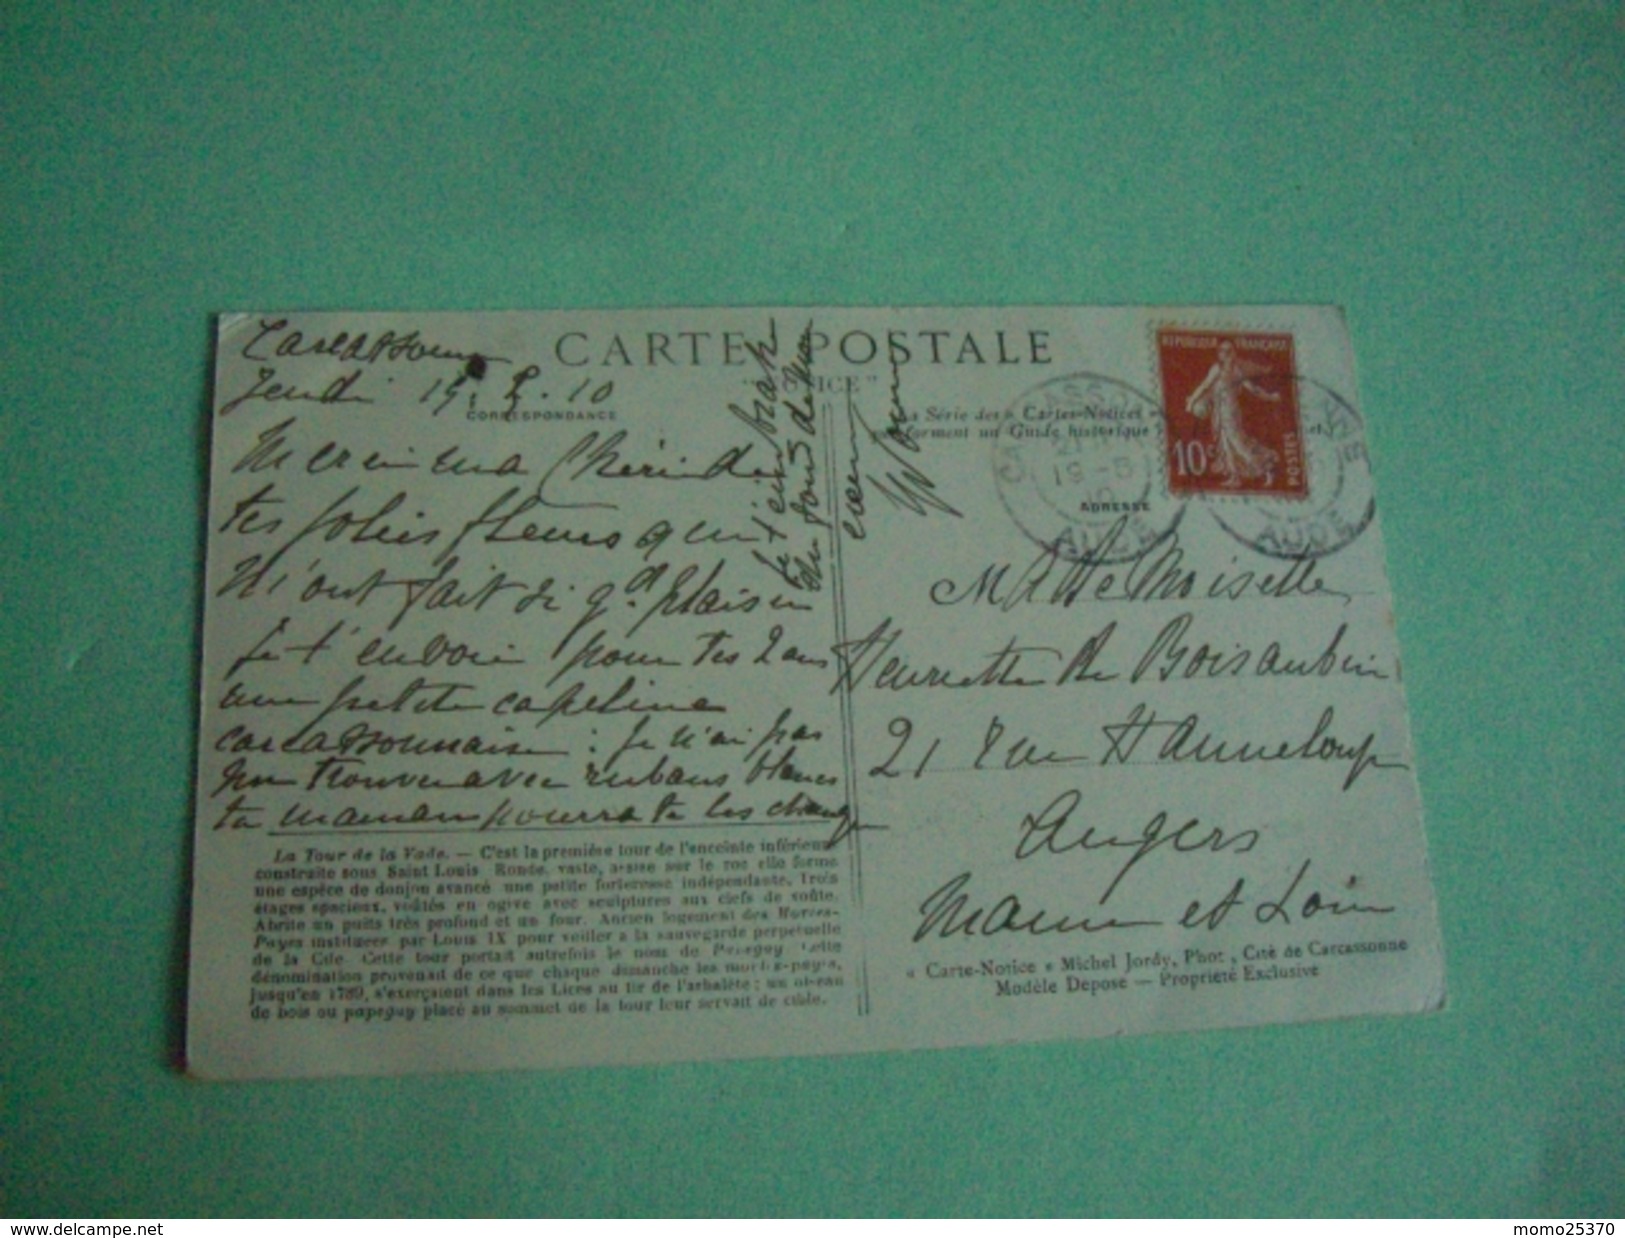 CARTE POSTALE
NICE"
Carcassonne
Jeudi 19. 5. 10
CORRESPONDANCE
Merci ma Chérie de
tes jolies fleurs qui
m'ont fait si gd plaisir
je t'envoie pour tes 2 ans
une petite capeline
carcassonnaise : je n'ai pas
pu trouver avec rubans blancs
ta maman pourra te les changer
je t'embrasse
du fond de mon
cœur
La Tour de la Vade. — C'est la première tour de l'enceinte inférieure
construite sous Saint Louis Ronde, vaste, assise sur le roc elle forme
une espèce de donjon avancé une petite forteresse indépendante. Trois
étages spacieux, voûtés en ogive avec sculptures aux clefs de voûte.
Abrite un puits très profond et un four. Ancien logement des Mortes-
Payes instituées par Louis IX pour veiller à la sauvegarde perpétuelle
de la Cité. Cette tour portait autrefois le nom de Papeguy. Cette
dénomination provenait de ce que chaque dimanche les mortes-payes,
jusqu'en 1789, s'exerçaient dans les Lices au tir de l'arbalète; un oiseau
de bois ou papeguy placé au sommet de la tour leur servait de cible.
La Série des "Cartes-Notices"
forment un Guide historique
REPUBLIQUE FRANÇAISE
10c
POSTES
19 -5
10
AUDE
AUDE
ADRESSE
MAdeMoiselle
Henriette de Boisaubin
21 rue Hanneloup
Angers
Maine et Loire
« Carte-Notice » Michel Jordy, Phot., Cité de Carcassonne
Modèle Déposé — Propriété Exclusive
delcampe.net
momo25370